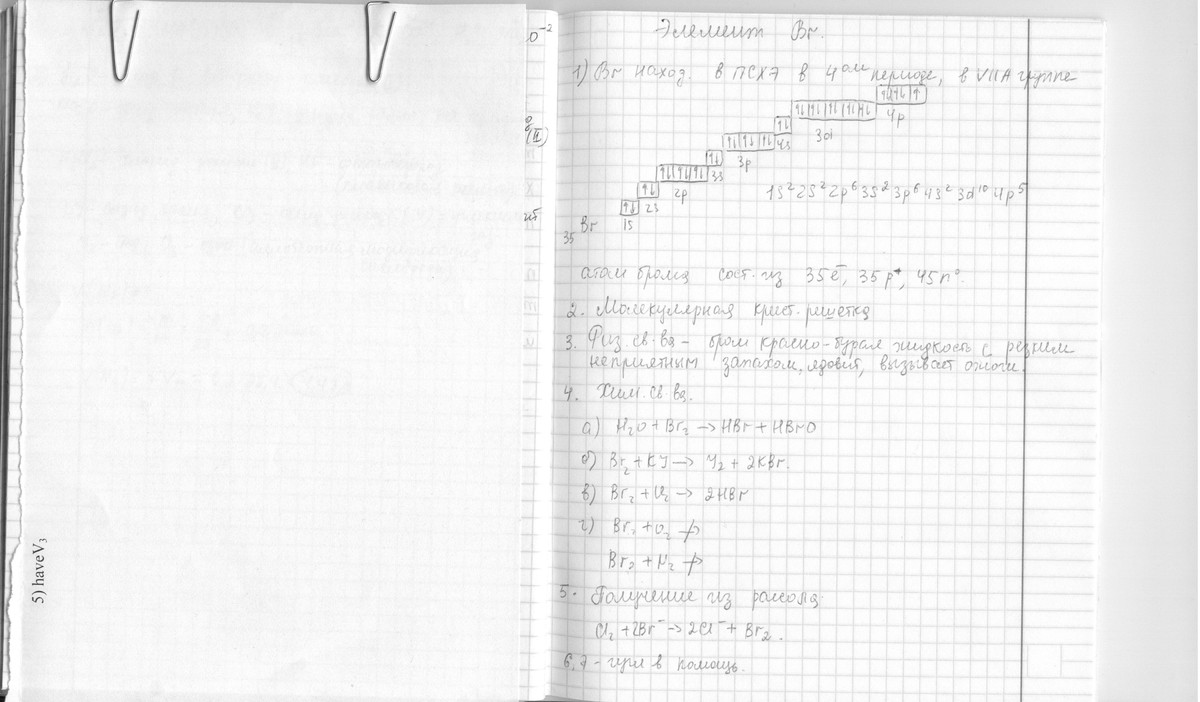 5) haveV₃
0⁻²
(II)
Элемент Br.
1) Br наход. в ПСХЭ в 4ᵒᵐ периоде, в VIIA группе
4p
3d
4s
3p
3s
2p
1s²2s²2p⁶3s²3p⁶4s²3d¹⁰4p⁵
2s
₃₅Br
1s
атом брома сост. из 35e⁻, 35p⁺, 45n⁰.
2. Молекулярная крист. решетка
3. Физ. св. ва - бром красно-бурая жидкость с резким
неприятным запахом, ядовит, вызывает ожоги.
4. Хим. св. ва.
а) H₂O + Br₂ → HBr + HBrO
б) Br₂ + KJ → J₂ + 2KBr.
в) Br₂ + H₂ → 2HBr
г) Br₂ + O₂ ↛
Br₂ + N₂ ↛
5. Получение из рассола
Cl₂ + 2Br⁻ → 2Cl⁻ + Br₂.
6,7 - в помощь.